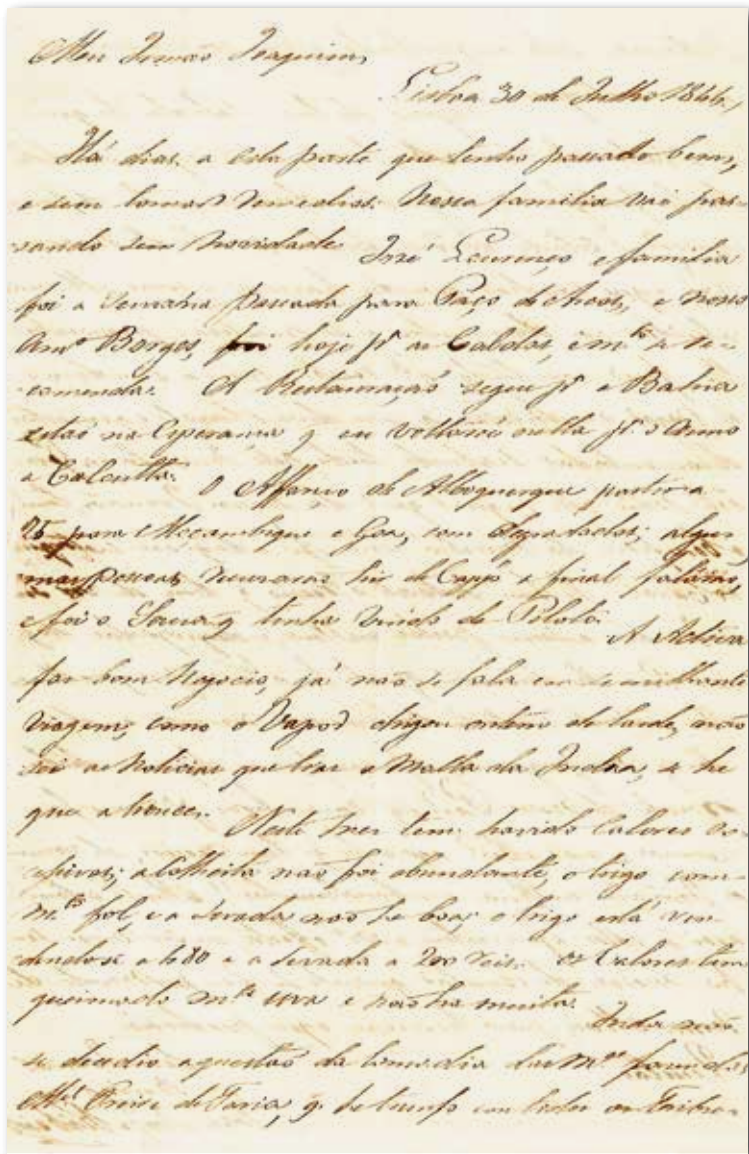 Meu Irmão Joaquim,
Lisboa 30 de Julho 1844,
Há dias a esta parte que tenho passado bem,
e sem tomar remedios. Nossa familia vai pas-
sando sem novidade. José Lourenço e familia
foi a semana passada para Paço de Arcos, e nosso
Amº Borges, foi hoje pª as Caldas, e mto se re-
comenda. A Restauração segue pª a Bahia
estão na esperança q eu voltarei nella pª o Anno
a Calcutta. O Affonso de Albuquerque partio a
25 para Moçambique e Goa, com degradados; algu-
mas pessoas a final
e foi o q tinha vindo de Piloto. A Activa
faz bom Negocio, já não se fala em semilhante
viagem; como o Vapor chegou ontem de tarde, não
sei as Noticias que traz a Malla da India, se he
que a trouce. Neste mez tem havido Calores ex-
cessivos; a Colheita não foi abundante, o trigo com
mta fol, e a Sevada não he boa; o trigo está ven-
dendose a 480 e a Sevada a 200 reis. Os Calores tem
queimado mta uva e não ha muita. Inda não
se decidio a questão da
Mel de Faria, q